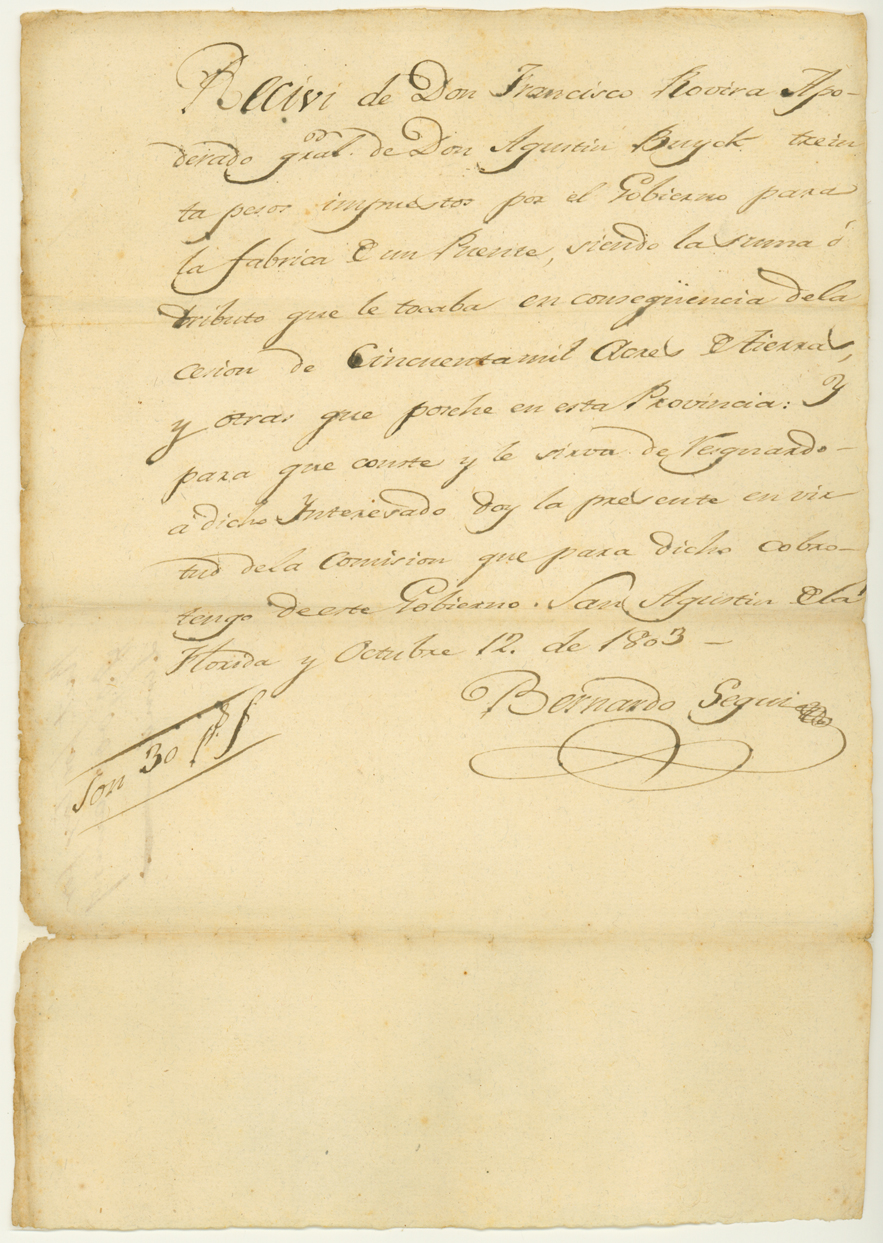 Recivi de Don Francisco Rovira Apo-
derado gral. de Don Agustin Buyck trein
ta pesos impuestos por el Gobierno para
la fabrica de un Puente, siendo la suma ó
tributo que le tocaba en conseqüencia dela
cesion de Cincuentamil Acres de tierras,
y otras que posehe en esta Provincia: Y
para que conste y le sirva de Resguardo-
a dicho Ynteresado doy la presente en vir
tud dela Comision que para dicho cobro-
tengo de este Gobierno. San Agustin de la
Florida y Octubre 12. de 1803-
Bernardo Segui
Son 30 ps. fs.